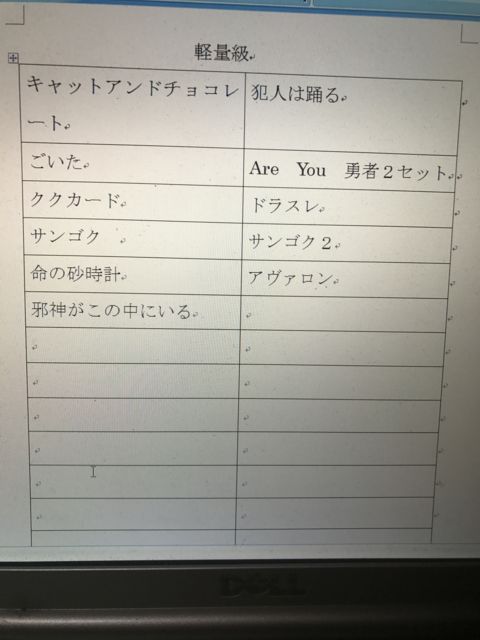 軽量級
キャットアンドチョコレ
ート
犯人は踊る
ごいた
Are You 勇者２セット
ククカード
ドラスレ
サンゴク
サンゴク２
命の砂時計
アヴァロン
邪神がこの中にいる
DELL